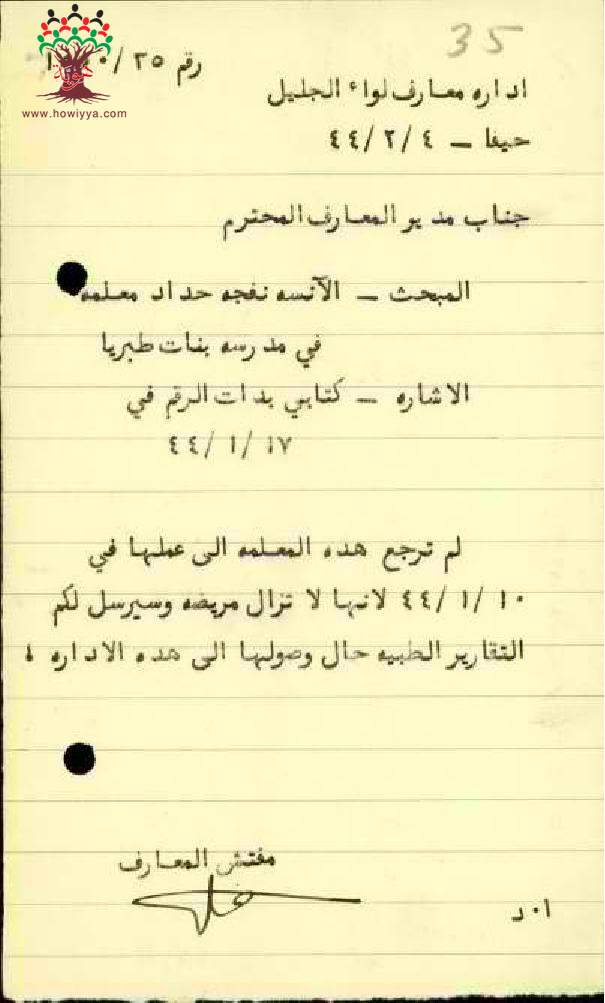 35
هوية
www.howiyya.com
رقم ٢٥/
اداره معارف لواء الجليل
حيفا – ٤٤/٢/٤
جناب مدير المعارف المحترم
المبحث – الآنسه نفجه حداد معلمه
في مدرسه بنات طبريا
الاشاره – كتابي بذات الرقم في
٤٤/١/١٧
لم ترجع هذه المعلمه الى عملها في
٤٤/١/١٠ لانها لا تزال مريضه وسيرسل لكم
التقارير الطبيه حال وصولها الى هذه الاداره
مفتش المعارف
ا٠د